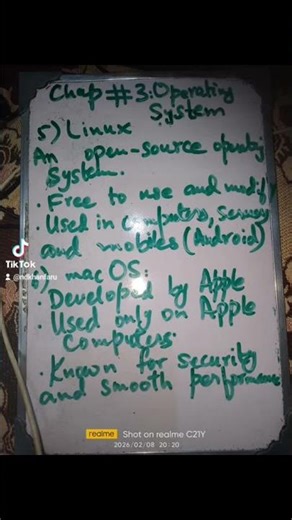 Chap # 3: Operating
System
5) Linux
An open-source operating
System.
· Free to use and modify
· Used in computers, servers
and mobiles (Android)
macOS:
· Developed by Apple
· Used only on Apple
Computers.
· Known for security
and smooth performance
TikTok
realme Shot on realme C21Y
2026/02/08 20:20